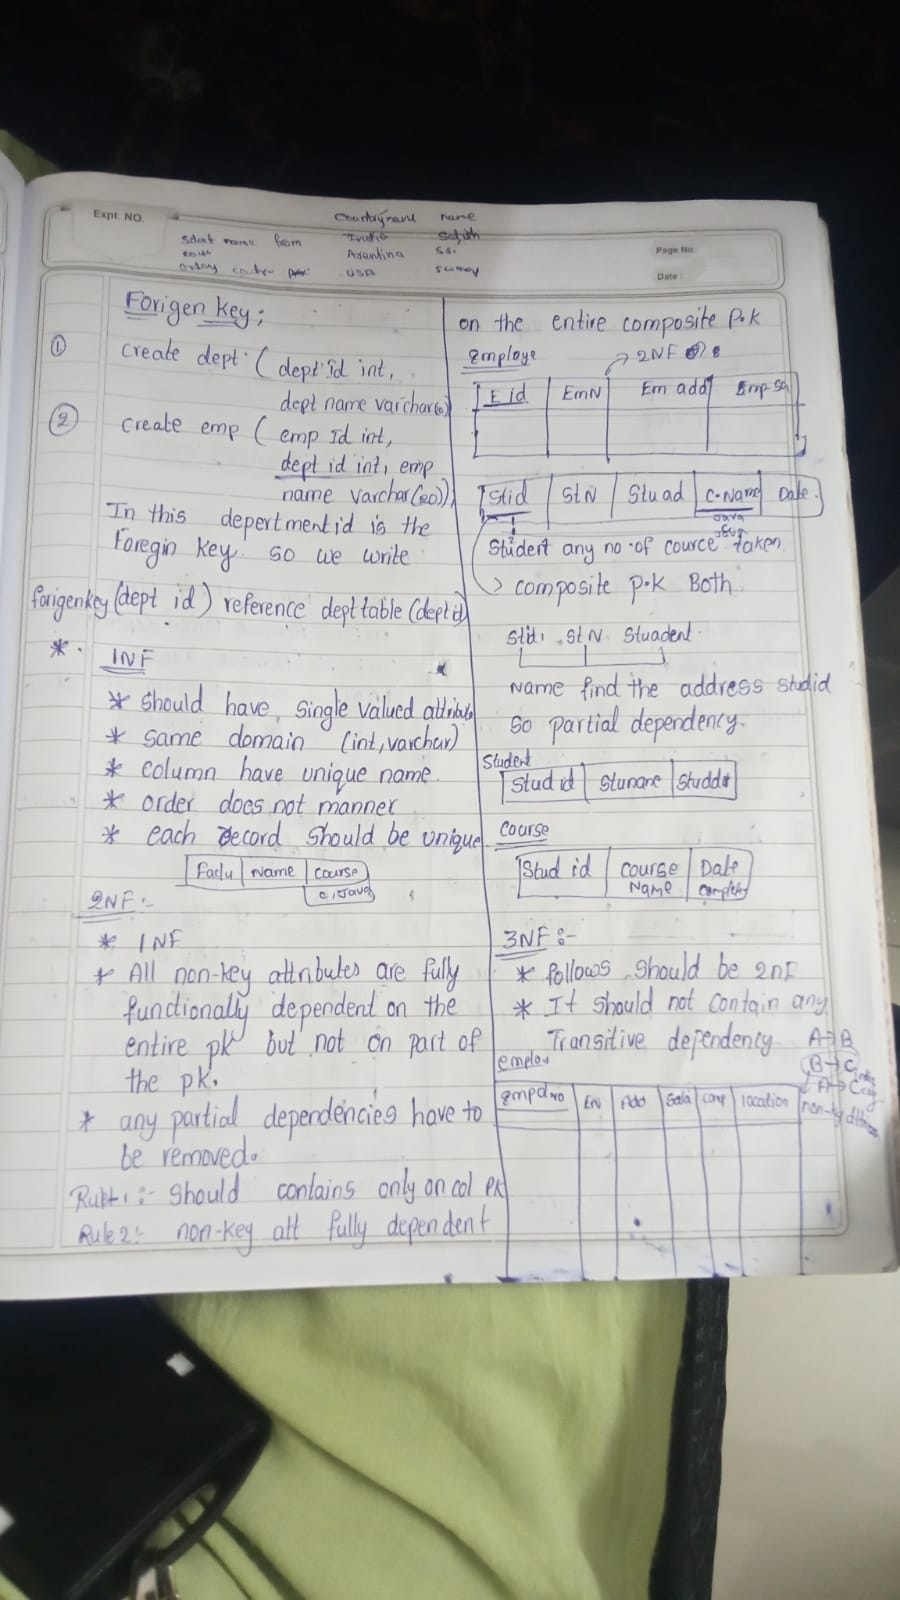 Expt. NO.
Page No.
Date :
Countryname name
India
Argentina
USA
Forigen Key;
① create dept (dept id int,
dept name varchar
② create emp ( emp Id int,
dept id int, emp
name varchar(20))
In this depertmentid is the
Foregin Key so we write
forigenkey (dept id) reference depttable (deptid)
*
1NF
* should have single valued attribute
* same domain (int, varchar)
* column have unique name.
* order does not manner
* each record should be unique
Name course
c, Java
2NF:-
* 1NF
* All non-key attributes are fully
functionally dependent on the
entire pk but not on part of
the pk.
* any partial dependencies have to
be removed.
:- should contains only on col PK
Rule 2:- non-key att fully dependent
on the entire composite P.K
Employe
→ 2NF
E id EmN Em add Emp Sa
Stid StN Stuad C-Name Date
Java
Student any no of cource taken
→ composite p.k Both
Stid, StN Stuadent
Name find the address studid
so partial dependency.
Student
Stud id Stuname Studdr
Course
Stud id course Name Date
3NF:-
* follows should be 2nF
* It should not contain any
Transitive dependency A→B
B→C
A→C
EN Add Sala comp location